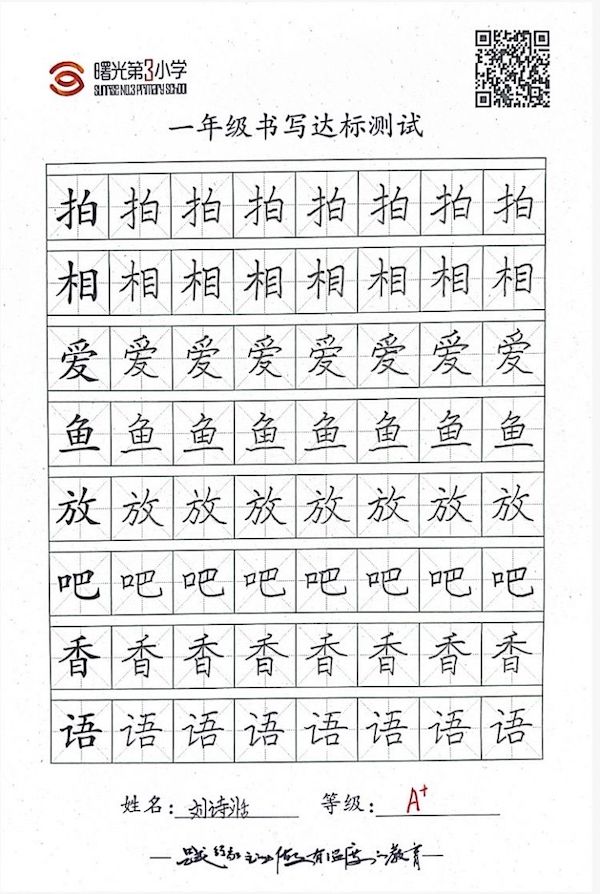 曙光第3小学
SUNRISE NO.3 PRIMARY SCHOOL
一年级书写达标测试
拍 拍 拍 拍 拍 拍 拍 拍
相 相 相 相 相 相 相 相
爱 爱 爱 爱 爱 爱 爱 爱
鱼 鱼 鱼 鱼 鱼 鱼 鱼 鱼
放 放 放 放 放 放 放 放
吧 吧 吧 吧 吧 吧 吧 吧
香 香 香 香 香 香 香 香
语 语 语 语 语 语 语 语
姓名: 刘诗 等级: A+
做有温度 教育